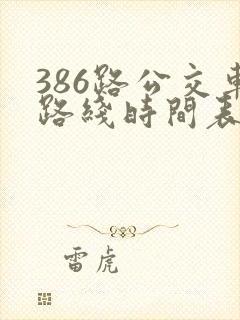 386路公交車
路綫時間表
雷虎